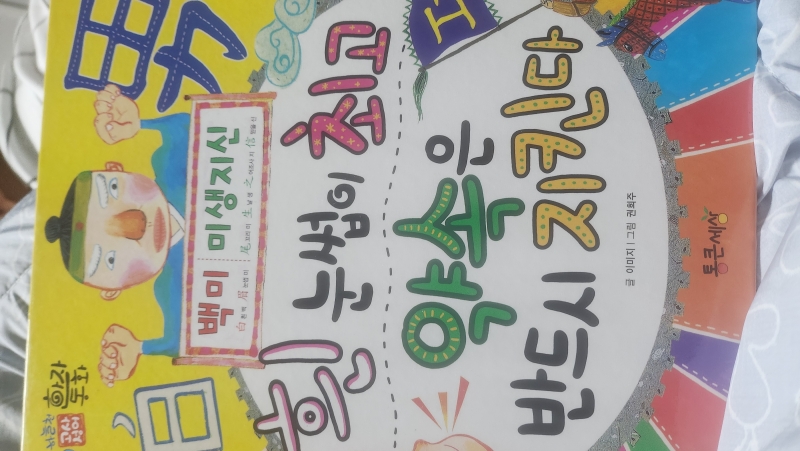 한자
동화
고사
성어
백미 미생지신
白 흰 백 眉 눈썹 미 尾 꼬리 미 生 날 생 之 어조사 지 信 믿을 신
흰 눈썹이 최고
약속은
반드시 지킨다
글 이미지 | 그림 권희주
통큰세상